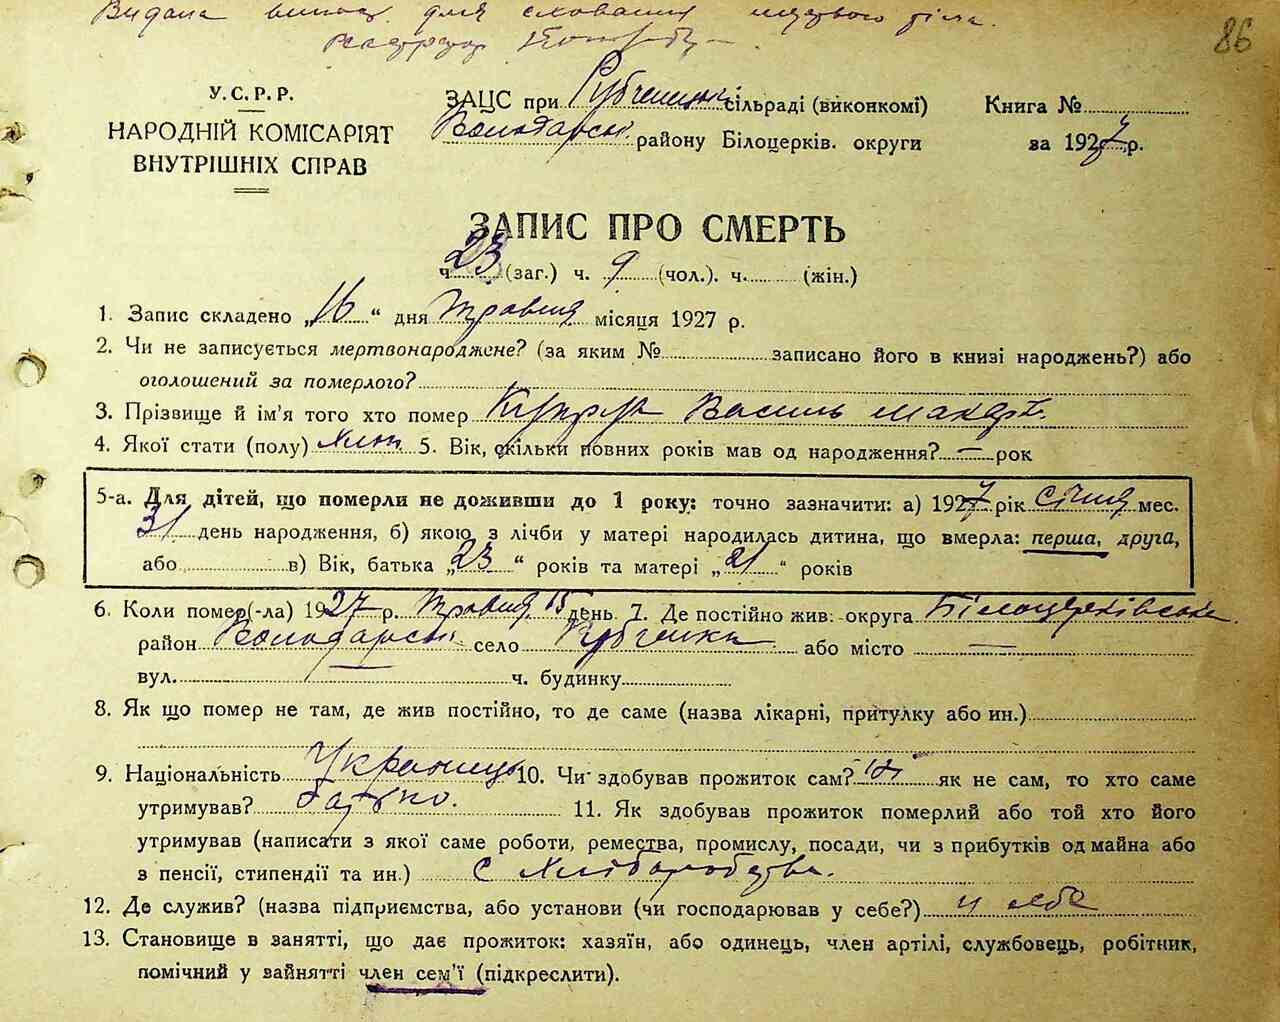 Видана випис для сховання мертвого тіла.
86
У.С.Р.Р.
НАРОДНІЙ КОМІСАРІЯТ
ВНУТРІШНІХ СПРАВ
ЗАЦС при сільраді (виконкомі)
Володарськ. району Білоцерків. округи
Книга №
за 1927 р.
ЗАПИС ПРО СМЕРТЬ
ч 23 (заг.) ч. 9 (чол.). ч. (жін.)
1. Запис складено „16“ дня травня місяця 1927 р.
2. Чи не записується мертвонароджене? (за яким № записано його в книзі народжень?) або
оголошений за померлого?
3. Прізвище й ім'я того хто помер Василь
4. Якої стати (полу) хлоп. 5. Вік, скільки повних років мав од народження? — рок
5-а. Для дітей, що померли не доживши до 1 року: точно зазначити: а) 1927 рік січня мес.
31 день народження, б) якою з лічби у матері народилась дитина, що вмерла: перша, друга,
або в) Вік, батька „23“ років та матері „21“ років
6. Коли помер(-ла) 1927 р. травня 15 день 7. Де постійно жив: округа Білоцерківська
район Володарськ. село Рубченки або місто —
вул. — ч. будинку
8. Як що помер не там, де жив постійно, то де саме (назва лікарні, притулку або ин.)
9. Національність Українець 10. Чи здобував прожиток сам? ні як не сам, то хто саме
утримував? батько. 11. Як здобував прожиток померлий або той хто його
утримував (написати з якої саме роботи, ремества, промислу, посади, чи з прибутків од майна або
з пенсії, стипендії та ин.) с хліборобства.
12. Де служив? (назва підприємства, або установи (чи господарював у себе?) у себе
13. Становище в занятті, що дає прожиток: хазяїн, або одинець, член артілі, службовець, робітник,
помічний у зайнятті член сем'ї (підкреслити).